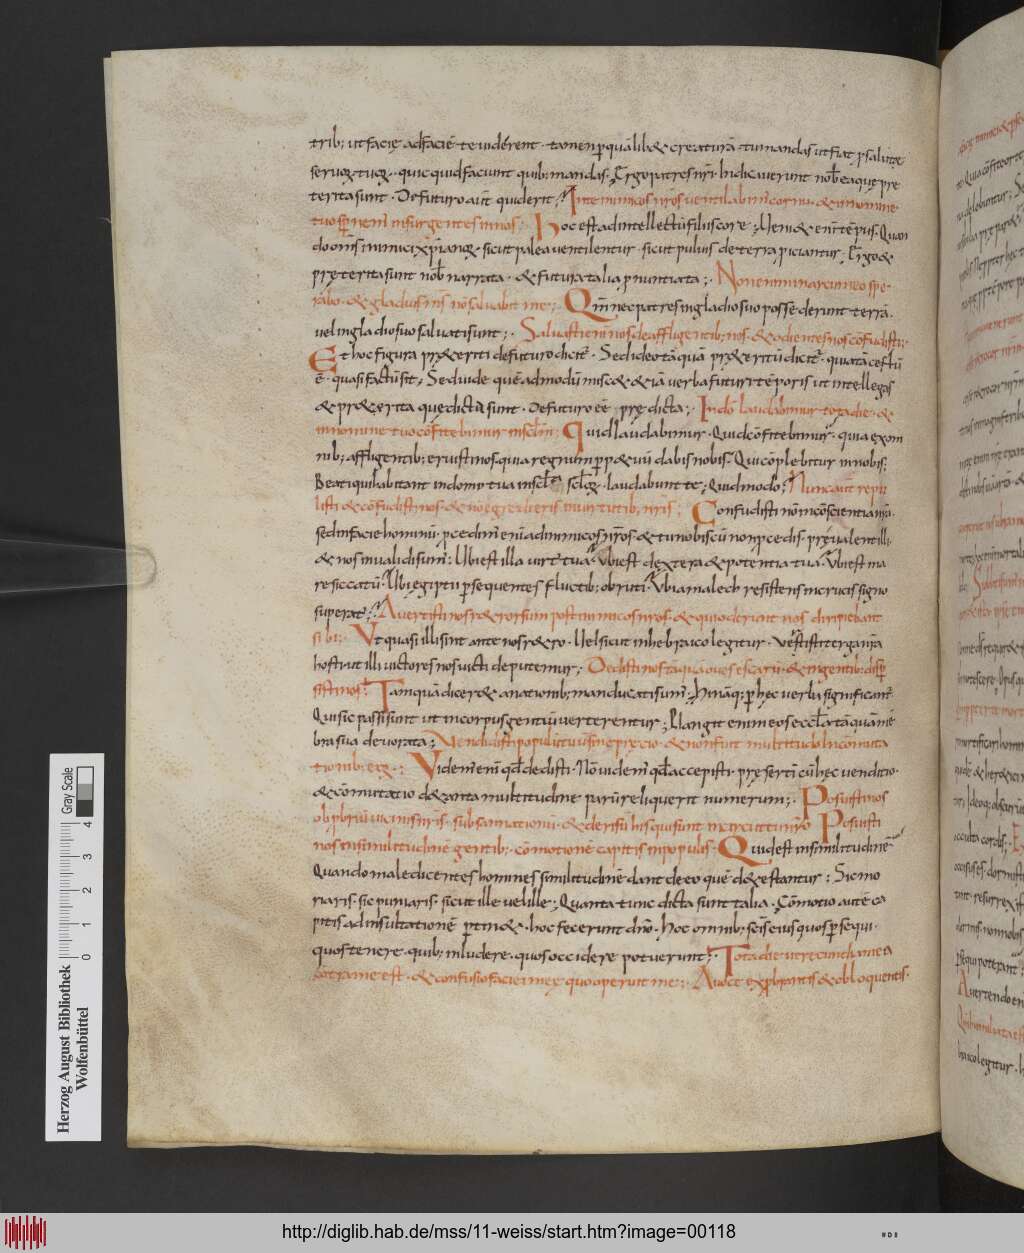 trib; ut facię ad facie te vidérent · tamen p quālib& creaturā tu mandas ut fiat p salute
seruoꝝ tuoꝝ · quic quid faciunt quib; mandas; Ergo patres nr̄i · hi dicauerunt nob̄ ea quę pre
terita sunt · De futuro aut̄ quid erit; In te inimicos nr̄os uentilabim cornu · & in nomine
tuo sp̄nem̄ insurgentes in nos; Hoc est ad intellectū filiis core; Ueni& eni tēpus · Quan
do om̄s inimici xp̄ianoꝝ · sicut palea uentilentur · sicut puluis de terra piciantur; Ergo &
pręterita sunt nob̄ narrata · & futura talia p nuntiata; Non enim in arcu meo spe
rabo · & gladius m̄s nō saluabit me; Qm̄ nec patres in gladio suo possederunt terrā ·
uel in gladio suo saluati sunt; Saluasti eni nos de affligentib; nos · & odientes nos cōfudisti;
Et hoc figura pr&eriti de futuro dicit̄ · Sed ideo tāquā pr&eritū dicit̄ · quia tā certū
ē · quasi factū sit; Sed uide quē admodū misc& & iā uerba futuri tēporis ut intellegas
& pr&erita quę dicta sunt · De futuro ēē prę dicta; In dō laudabimur tota die · &
in nomine tuo cōfitebimur in sclm̄; Quid laudabimur · Quid cōfitebimur · quia ex om
nib; affligentib; eruisti nos · quia regnum pp&uū dabis nobis · Qui cōplebitur in nobis;
Beati qui habitant in domo tua in scl̄a scl̄oꝝ · laudabunt te; Quid modo; Nunc aut̄ repu
listi & cōfudisti nos · & nō egredieris in uirtutib; nr̄is; Confudisti nō in cōscientia nr̄a ·
sed in facie hominū · pcedim̄ eni ad inimicos nr̄os · & tu nobiscū non pcedis · pręualent illi ·
& nos inualidi sum̄; Ubi est illa uirt' tua · Ubi est dextera & potentia tua · Ubi est ma
re siccatū · Ubi egiptii psequentes fluctib; obruti · Ubi amalech resistens in crucis signo
superat̄; Auertisti nos r&rorsum post inimicos nr̄os · & qui oderunt nos diripiebant
sibi; Ut quasi illi sint ante nos r&ro · Uel sicut in hebraico legitur · uertisti terga nr̄a
hosti · ut illi uictores nos uicti deputemur; Dedisti nos tāquā oues escarū · & in gentib; disp̄
sisti nos; Tanquā dicer& a nationib; manducati sum̄; Hi nāq; p hęc uerba significant̄
Qui sic passi sunt ut in corpus gentiū uerterentur; Plangit enim eos eccl̄a tāquā mē
bra sua deuorata; Uendidisti populū tuū sine precio · & non fuit multitudo in cōmuta
tionib; eoꝝ; Videm̄ eni qd̄ dedisti · Nō uidem̄ qd̄ accepisti · prę serti cū hęc uenditio ·
& cōmutatio d& anta multitudine parū reliquerit numerum; Posuisti nos
obprbriū uicinis nr̄is · subsannationū · & derisū his qui sunt in circuitu nr̄o Posuisti
nos in similitudinē gentib; cōmotionē capitis in populis · Quid est in similitudinē
Quando maledicentes homines similitudinē dant de eo quē d&estantur; Sic mo
riaris · sic puniaris · sicut ille uel ille; Quanta tunc dicta sunt talia · Cōmotio autē ca
pitis ad insultationē p tin& · hoc fecerunt dn̄o · hoc omnib; sc̄is eius quos p sequi ·
quos tenere · quib; inludere · quos occidere potuerunt; Tota die uerecundia mea
contra me est · & confusio faciei meę quo operuit me; A uoce exprbrantis & obloquentis ·
Herzog August Bibliothek
Wolfenbüttel
Gray Scale
0 1 2 3 4
http://diglib.hab.de/mss/11-weiss/start.htm?image=00118